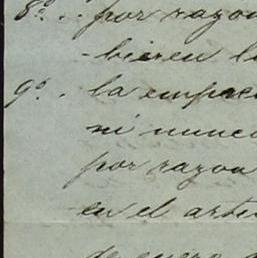 8º. . por razon
-bieren l
9º. . la empac
ni nunca
por razon
en el arti
de enero